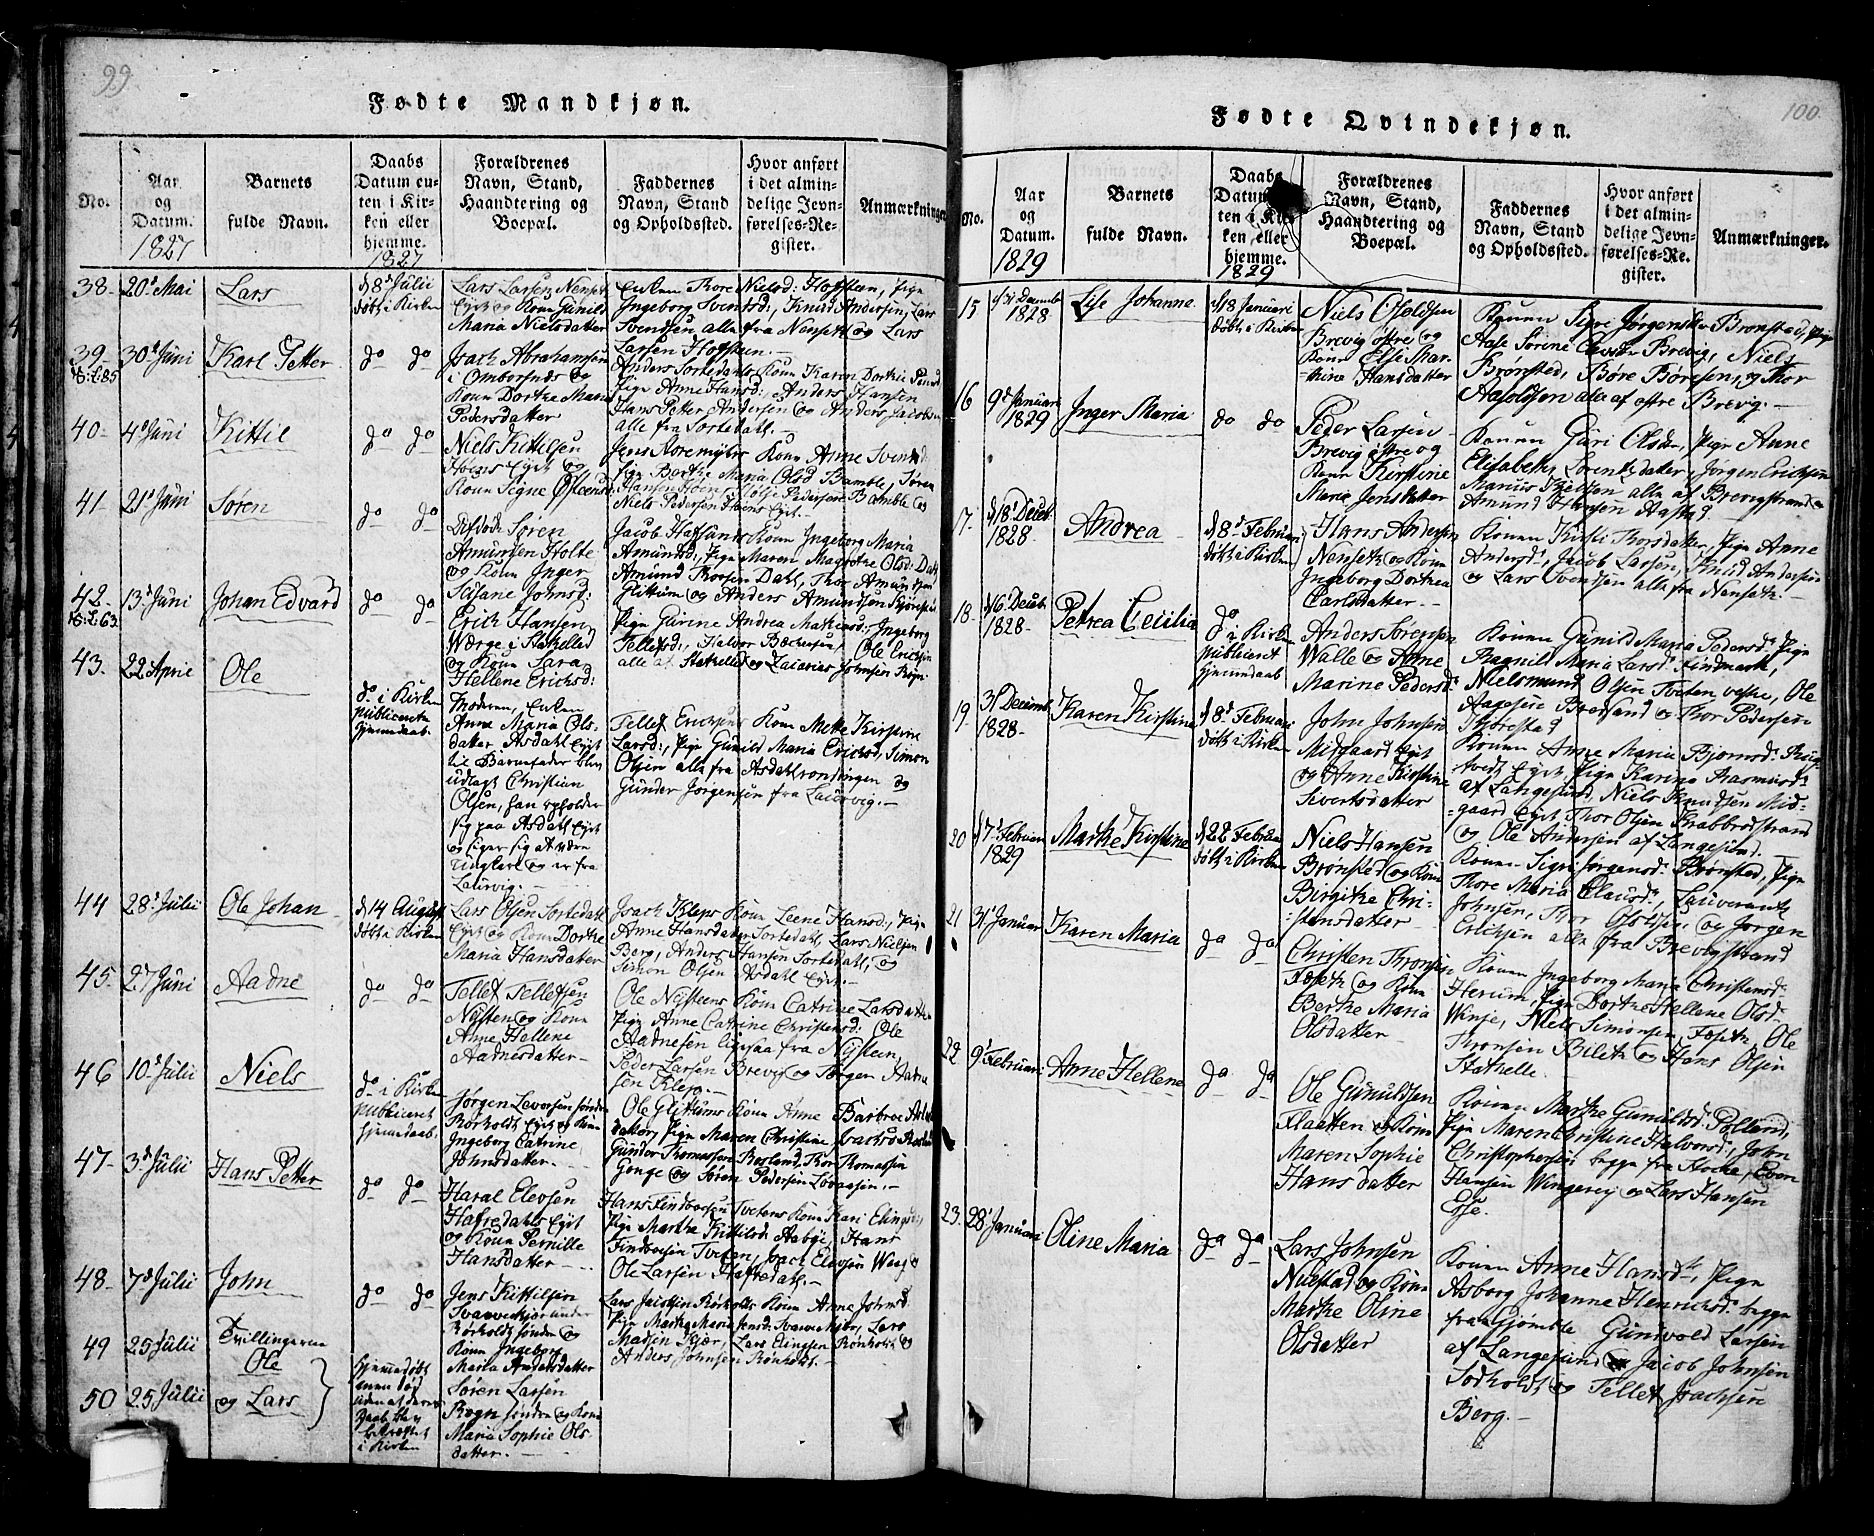 99
Fødte Mandkjøn.
No.
Aar og Datum.
1827
Barnets fulde Navn.
Daabs Datum enten i Kirken eller hjemme.
1827
Forældrenes Navn, Stand, Haandtering og Boepæl.
Faddernes Navn, Stand og Opholdssted.
Hvor anført i det almindelige Jevnførelses-Register.
Anmærkninger
38. 20d Mai
Lars
d 8d Julii
døbt i Kirken
Lars Larsen Nensett
Eyet og Koun Gunild
Maria Nielsdatter
Enken Thore Nielsd: Hafsten, Pige
Ingeborg Svendsd:, Knud Andersen, Lars
Svendsen alle fra Nensett og Lars
Larsen Hafsten.
39. 30d Juni
Karl Petter
do do
Isach Abrahamsen
i Omborsnæs og
Koun Dortea Maria
Pedersdatter
Anders Sortedahls Koun Karen Dortea
Pige Anne Hansd:, Anders Hansen
Hans Petter Andersen og Anders Jacobsen
alle fra Sortedahl.
40. 4d Juni
Kittil
do do
Niels Kittilsen
Hoens Eyet og
Koun Signe Østensd:
Jens Aaremyhrs Koun Anne Svends
Pige Berthe Maria Olsd Bamble, Søren
Hansen Hoens, Pedersen Bamble og
Niels Pedersen Hoens Eyet.
41. 21d Juni
Søren
do do
Søren
Amundsen Holte
og Koun Inger
Susane Johnsd:
Jacob Hafsunds Koun Ingeborg Maria
Amundsd:, Pige Maren Magrethe Olsd: Dahl
Amund Thorsen Dahl, Thor Amundsen
Glittum og Anders Amundsen
42. 13d Juni
Johan Edvard
do do
Erich Hansen
Værge i Stathelled
og Koun Sara
Hellene Erichsd:
Pige Gurine Andrea Mathiasd:, Ingeborg
Tellefsd:, Halvor Bæckersen, Ole Erichsen
alle af Stathelled og Zacarias Johnsen Rogn
43. 22 April
Ole
do i Kirken
publiceret
hjemmedaab
Moderen, Enken
Anne Maria Ols-
datter Asdahl Eyet
til Barnefader blev
udlagt Christian
Olsen, han opholder
sig paa Asdahl Eyet
og siger sig at være
Ungkarl og er fra
Laurvig.
Tellef Erichsens Koun Mette Kirstine
Larsd:, Pige Gunild Maria Erichsd, Simon
Olsen alle fra Asdahlrønningen og
Gunder Jørgensen fra Laurvig.
44 28d Julii
Ole Johan
d 14 August
døbt i Kirken
Lars Olsen Sortedahl
Eyet og Koun Dorthe
Maria Hansdatter
Isach Kleps Koun Leene Hansd:, Pige
Anne Hansdatter Sortedahl, Lars Nielsen
Berg, Anders Hansen Sortedahl, og
Simon Olsen Asdahl Eyet.
45. 27 Juni
Aadne
do do
Tellef Tellefsen
Nysten og Koun
Anne Hellene
Aadnesdatter
Ole Nysteens Koun Catrine Larsdatter
Pige Anne Catrine Christensd:, Ole
Aadnesen ligesaa fra Nysteen,
Peder Larsen Brevig og Jørgen Aadne
sen Klep.
46 10d Julii
Niels
do i Kirken
publiceret
hjemmedaab.
Jørgen Levorsen søndre
Rørholt Eyet og Koun
Ingeborg Catrine
Johnsdatter.
Ole Glittums Koun Anne Barbroe
datter, Pige Maren Christine Isachsd
Gunder Thomassen Besland, Thor Thomassen
Gonge og Søren Pedersen Lovaasen.
47. 3d Julii
Hans Petter
do do
Haral Elevsen
Hafredahls Eyet
og Koun Pernille
Hansdatter
Hans Findvorsen Tvetens Koun Kari
Pige Martha Kittilsd: Aabye, Hans
Findvorsen Tveten, Isach Elevsen Waag
Ole Larsen Hafredahl.
48. 7d Julii
John
do do
Jens Kittilsen
Svaverkjær under
Rørholt søndre og
Koun Ingeborg
Maria Andersdatter
Lars Jacobsen Rørholts Koun Anne Johnsd
Pige Marthe Maria Jensd: Svaverkjær, Lars
Madsen Kjær, Lars Elingsen Rønholt og
Anders Johnsen Rønholt.
49 25 Julii
50 25 Julii
Tvillingerne
Ole
og Lars
hjemmedøbt
i Kirken
Søren Larsen
Rogn søndre og Koun
Maria Sophie Ols
datter.
100
Fødte Qvindekjøn.
No.
Aar og Datum.
1829
Barnets fulde Navn.
Daabs Datum enten i Kirken, eller hjemme.
1829
Forældrenes Navn, Stand, Haandtering og Boepæl.
Faddernes Navn, Stand og Opholdssted.
Hvor anført i det almindelige Jevnførelses-Register.
Anmærkninger.
15 d 31 Decemb
1828
Lise Johanna
d 18 Januari
døbt i Kirken
Niels Osoldsen
Brevig østre og
Koun Else Mar-
thina Hansdatter
Kouen Sigri Jørgensdtr Brønsted, Pige
Aase Sørine Brevig, Niels
Brønsted, Børe Børesen, og Thor
Aasoldsen alle af østre Brevig.
16 9d Januari
1829
Inger Maria
do do
Peder Larsen
Brevig østre og
Koun Kirstine
Maria Jensdatter
Kouen Guri Olsdr, Pige Anne
Elisabeth Lorentsdatter, Jørgen Erichsen
Marius alle af Brevigstrand og
Amund Hansen Aasta
17. d 18d Decbr
1828.
Andrea
d 8d Februari
døbt i Kirken
Hans Andersen
Nenseth og Koun
Ingeborg Dorthea
Carlsdatter.
Kouen Kirsti Thorsdatter, Pige Anne
Andersd:, Jacob Larsen, Knud Andersen
og Lars Svensen alle fra Nenseth.
18. d 16d Decbr
1828.
Petrea Cecilia
do
i Kirken
publiceret
hjemmedaab
Anders Sørensen
Walle og Anne
Marine Pedersd:
Kouen Gunild Maria Pedersd: Pige
Ragnild Maria Larsd: Findmark,
Nielsmund Olsen Tveten vestre, Ole
Aagesen Brevsand og Thor Pedersen
Tørestad
19. 31 Decemb
1828.
Karen Kirstine
d 8d Februari
døbt i Kirken
John Johnsen
Midgaard Eyet
og Anne Kirstine
Sivertsdatter
Kouen Anne Maria Bjørnsd:
tvedt Eyet, Pige Karine Rasmusd:
af Langesund, Niels Knudsen Mid-
gaard Eyet Thor Olsen Krabberødstrand
og Ole Andersen af Langesund.
20 d 7d Februari
1829
Marthe Kirstine
d 22 Februari
døbt i Kirken
Niels Hansen
Brønsted og Koun
Birgithe Chri-
stensdatter
Kouen Sigri Jørgensd: Brønsted, Pige
Thore Maria Clausd:, Lauverants
Johnsen, Thor Osoldsen og Jørgen
Erichsen alle fra Brevigstrand
21 31 Januar
Karen Maria
do do
Christen Thronsen
Fosseth og Koun
Berthe Maria
Olsdatter
Kouen Ingeborg Maria Christensd:
Herum, Pige Dorthe Hellene Olsd:
Winje, Niels Simonsen Fosseth, Ole
Thronsen Bilet og Hans Olsen
Stathelle.
22 9d Februari
Anne Hellene
do do
Ole Gunuldsen
Flaatten og Koun
Maren Sophie
Hansdatter
Kouen Marthe Gunildsd: Rolland,
Pige Maren Christine Halvorsd:, John
Christophersen begge fra Hocke, Even
Hansen Wingerey og Lars Hansen
Eje.
23. 28d Januari
Oline Maria
do do
Lars Johnsen
Nustad og Koun
Marthe Oline
Olsdatter
Kouen Anne Hansdtr, Pige
Asborg Johanne Henrichsd: begge
fra Gjømble Gunvold Larsen
af Langesund Jacob Johnsen
Sødholt og Tellef Isachsen
Berg.